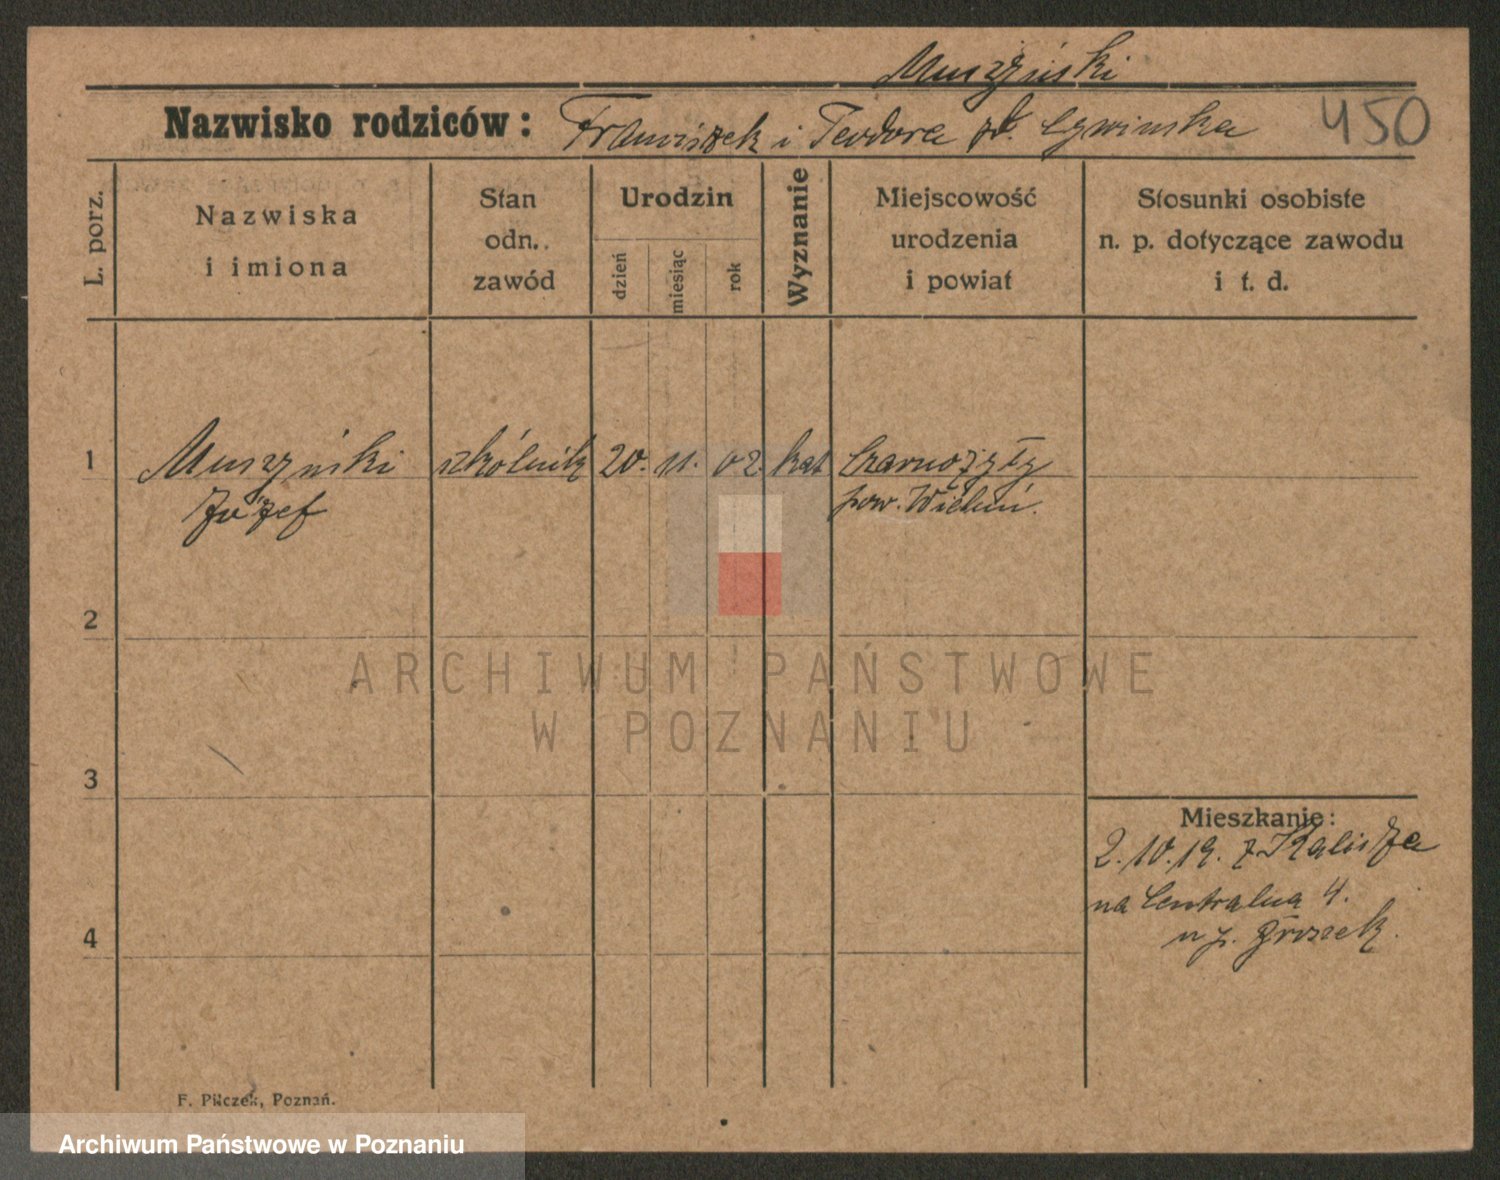 Muszyński
Nazwisko rodziców: Franciszek i Teodora zd.
450
L. porz.
Nazwiska
i imiona
Stan
odn..
zawód
Urodzin
dzień
miesiąc
rok
Wyznanie
Miejscowość
urodzenia
i powiat
Stosunki osobiste
n. p. dotyczące zawodu
i t. d.
1 Muszyński szkólnik 20. 11. 02. kat Czarnożyły
Józef pow. Wieluń.
2
ARCHIWUM PAŃSTWOWE
W POZNANIU
3
Mieszkanie:
2.10.19. z Kalisza
na Centralna 4.
4
F. Pilczek, Poznań.
Archiwum Państwowe w Poznaniu